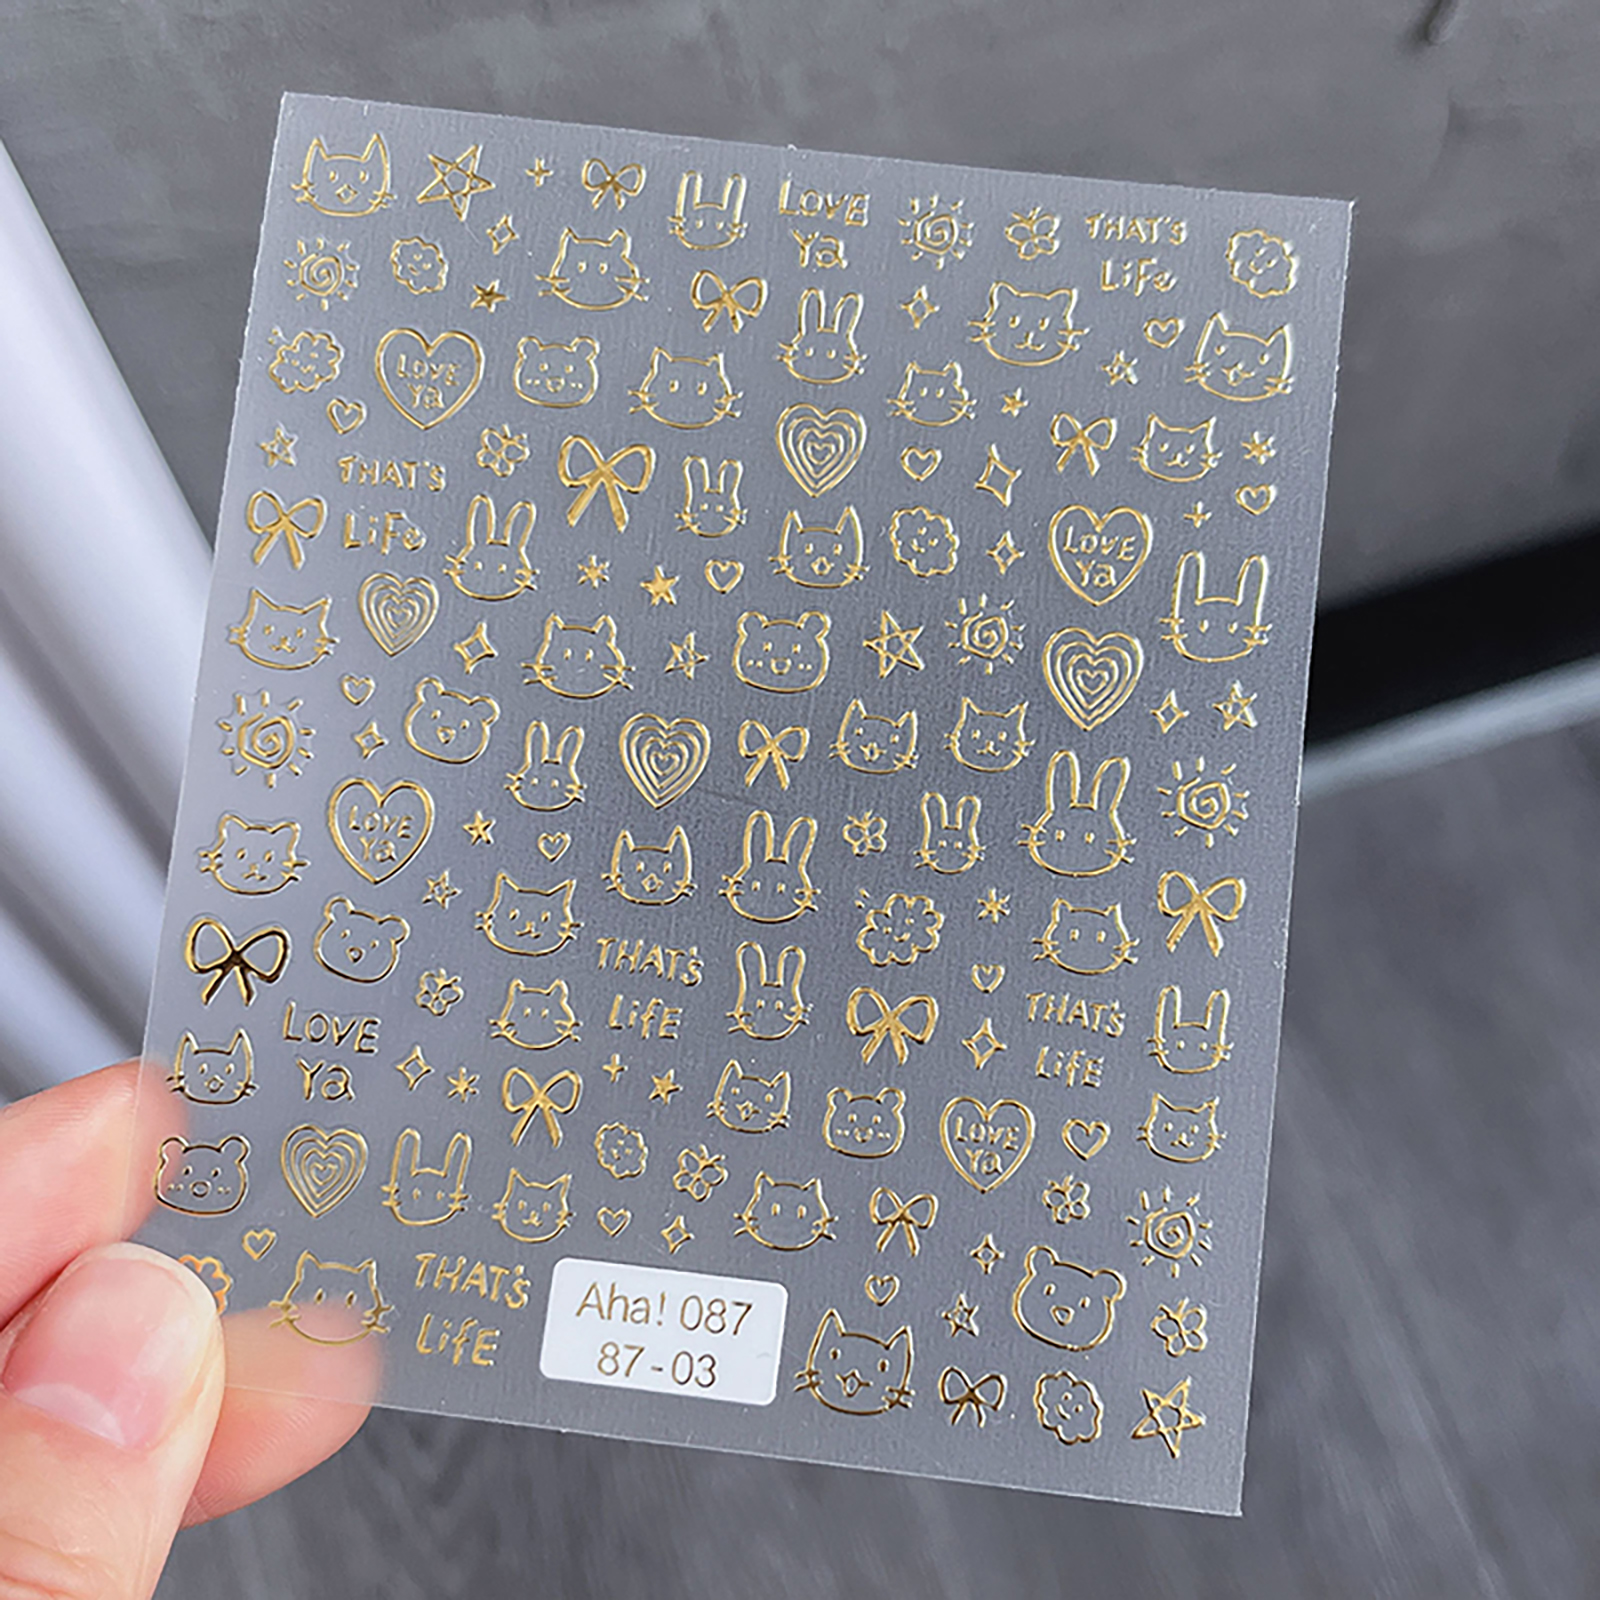 LOVE
Ya
THAT'S
LiFe
LOVE
Ya
THAT'S
LiFe
LOVE
Ya
LOVE
Ya
THAT'S
LifE
THAT'S
LifE
LOVE
Ya
LOVE
Ya
THAT'S
LifE
Aha! 087
87-03